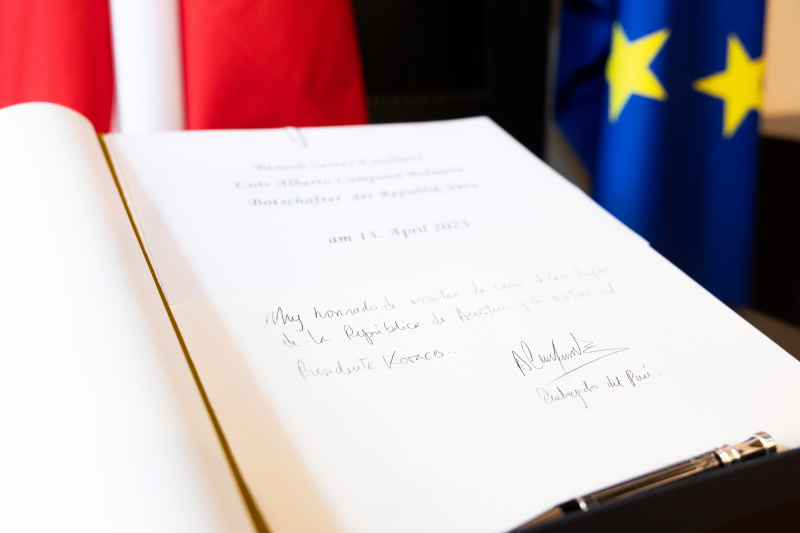 Besuch Seiner Exzellenz
Luis Alberto Campana Boluarte
Botschafter der Republik Peru
am 13. April 2023
Muy honrado de visitar la casa
de la República de Austria y de visitar al
Presidente Kovacs..
Embajador del Perú.